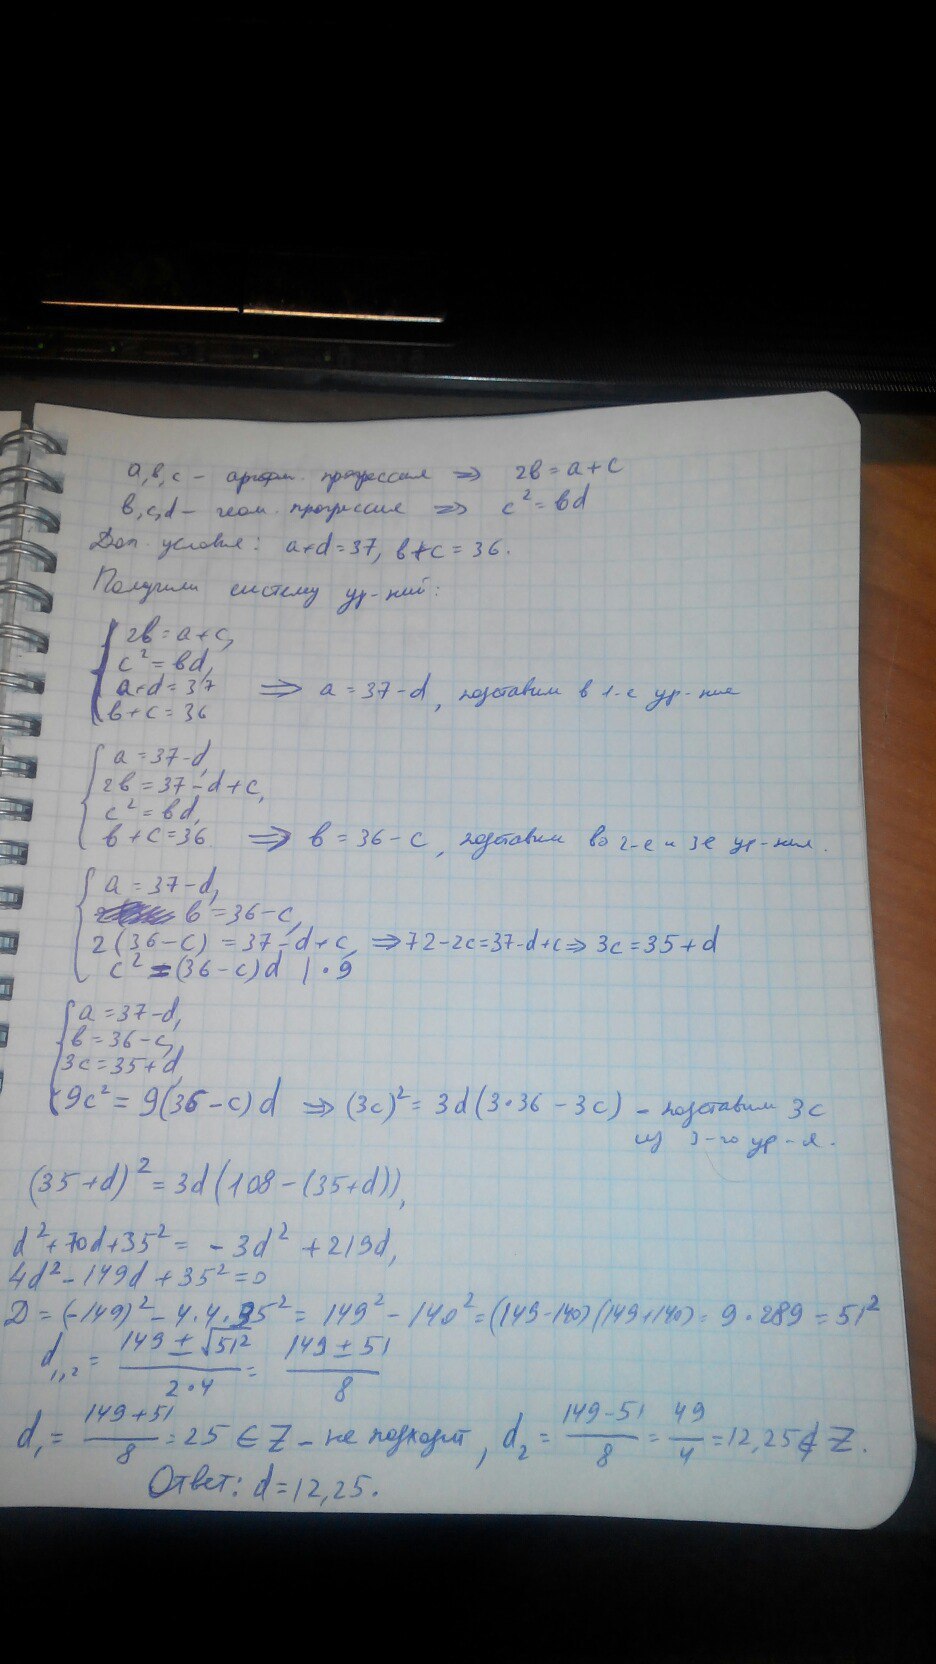 а, в, с – арифм. прогрессия ⇒ 2в = а + с
в, с, d – геом. прогрессия ⇒ c² = вd
Доп. условия: a+d=37, в+с = 36.
Получили систему ур-ний:
2в = а + с,
c² = вd,
a+d = 37 ⇒ a = 37-d, подставим в 1-е ур-ние
в + с = 36
a = 37-d,
2в = 37-d+c,
c² = вd,
в + с = 36 ⇒ в = 36 - с, подставим во 2-е и 3е ур-ния.
a = 37-d,
в = 36-с,
2(36-c) = 37-d+c, ⇒ 72-2c=37-d+c ⇒ 3c = 35+d
c² = (36-c)d | · 9
a = 37-d,
в = 36-с,
3c = 35+d,
9c² = 9(36-c)d ⇒ (3c)² = 3d(3·36 - 3c) – подставим 3с
из 3-го ур-я.
(35+d)² = 3d(108-(35+d)),
d²+70d+35² = -3d² + 219d,
4d² - 149d + 35² = 0
D = (-149)² - 4·4·35² = 149² - 140² = (149-140)(149+140) = 9·289 = 51²
d₁,₂ = (149 ± √51²)/(2·4) = (149 ± 51)/8
d₁ = (149+51)/8 = 25 ∈ Z – не подходит, d₂ = (149-51)/8 = 49/4 = 12,25 ∉ Z.
Ответ: d = 12,25.